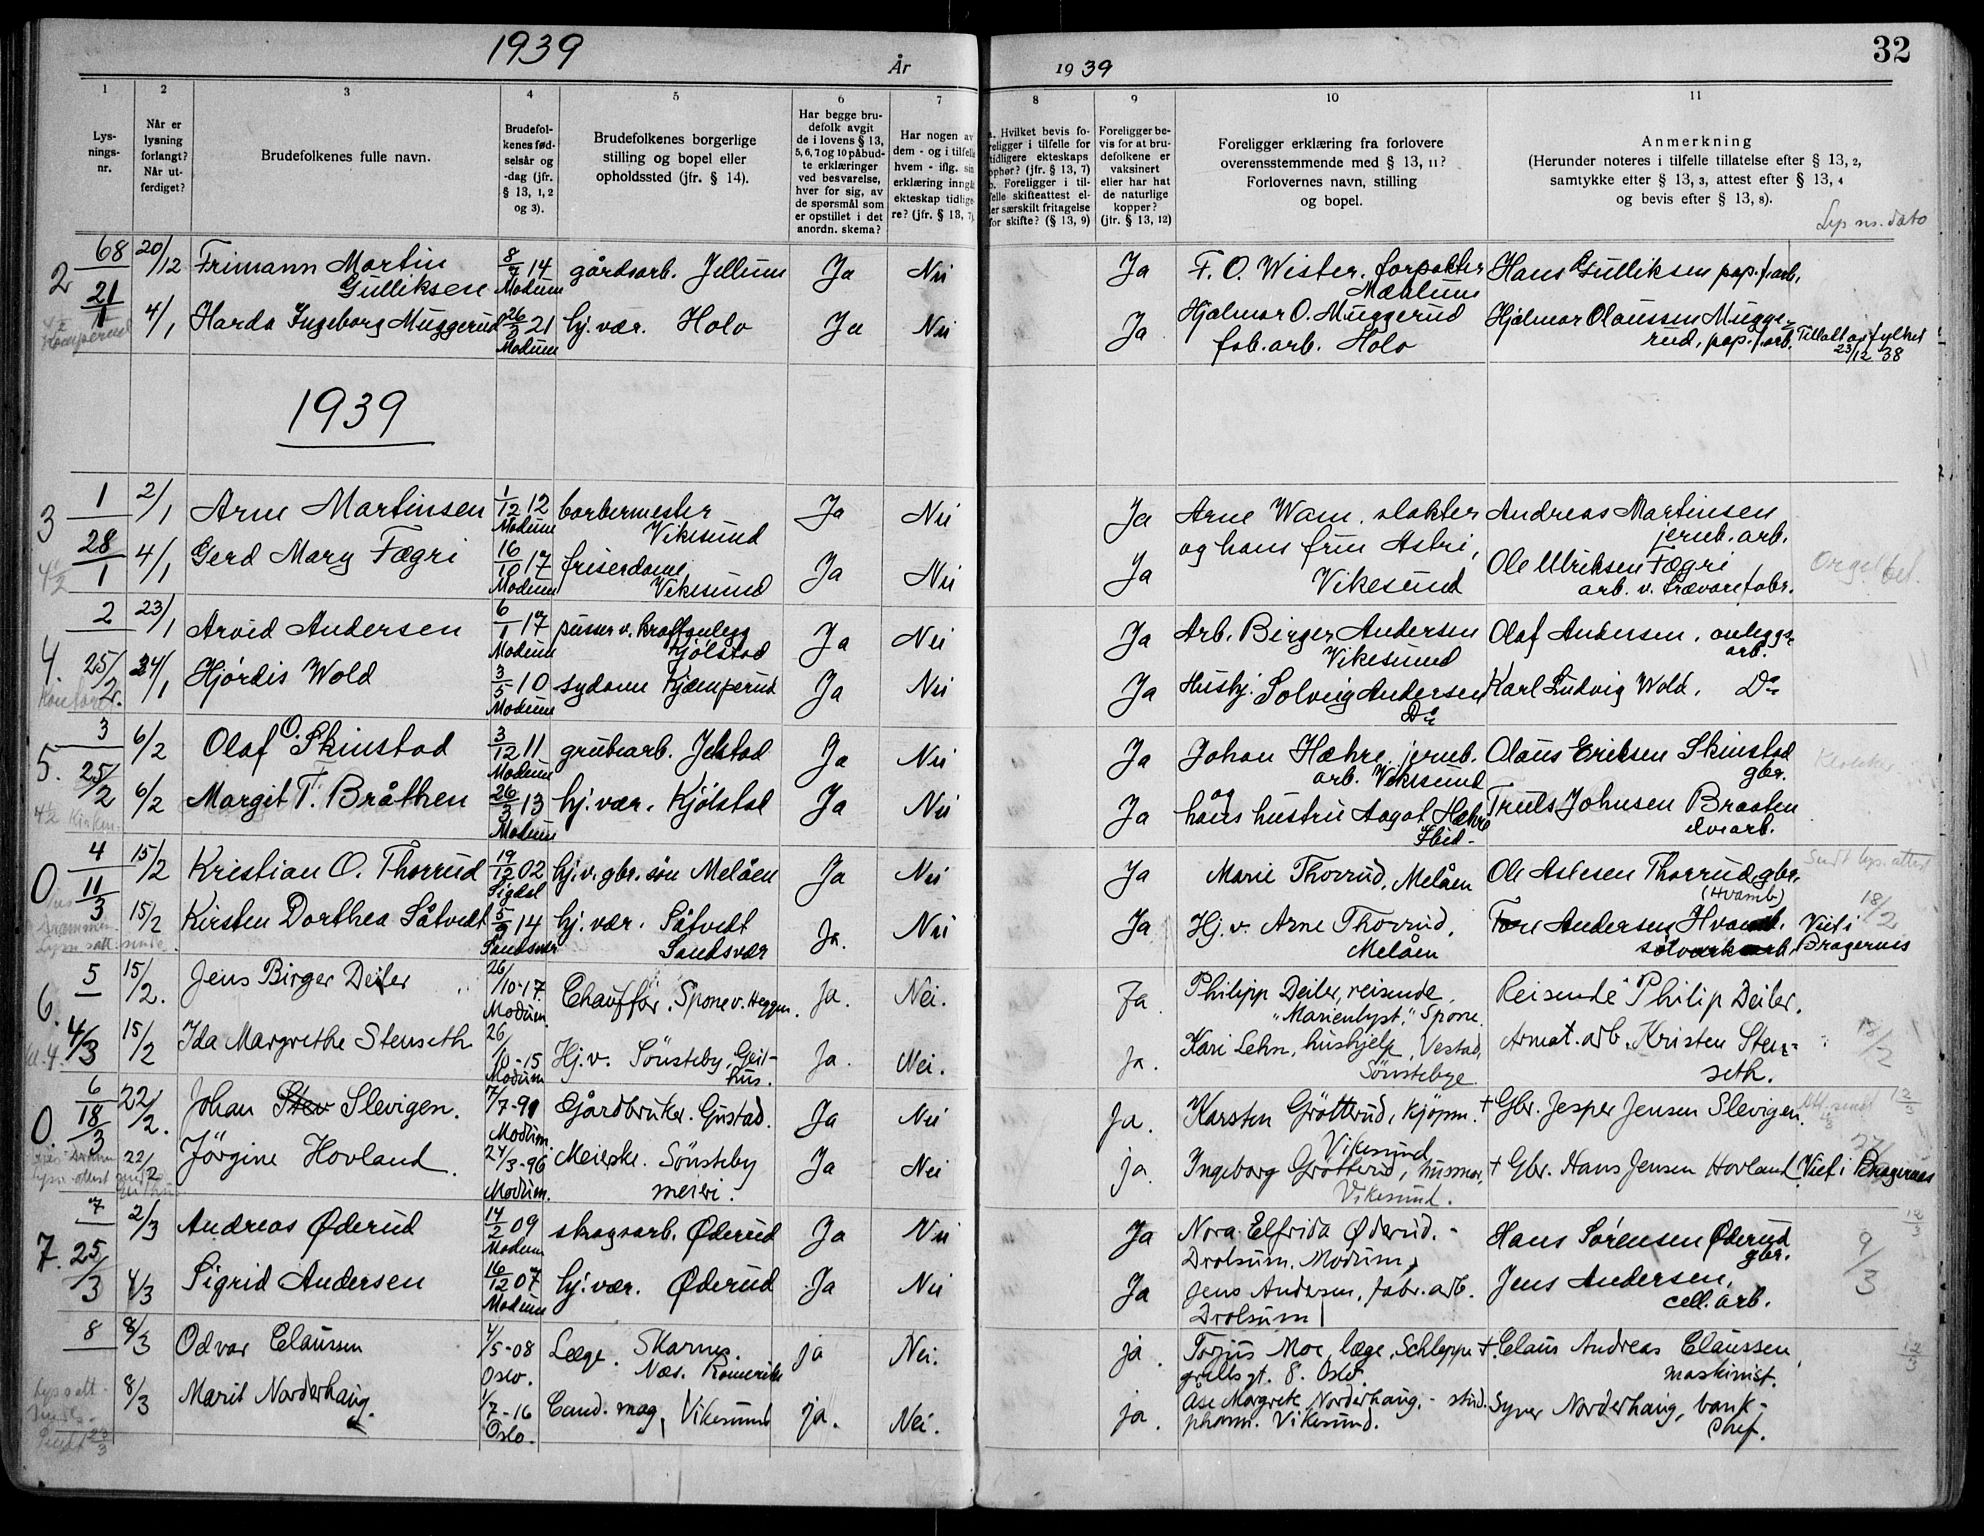 1939
År
19 39
32
1
2
3
4
5
6
7
8
9
10
11
Lys-
nings-
nr.
Når er
lysning
forlangt?
Når ut-
ferdiget?
Brudefolkenes fulle navn.
Brudefol-
kenes fød-
selsår og
-dag (jfr.
§ 13, 1, 2
og 3).
Brudefolkenes borgerlige
stilling og bopel eller
opholdssted (jfr. § 14).
Har begge bru-
defolk avgit
de i lovens § 13,
5, 6, 7 og 10 påbud-
te erklæringer
ved besvarelse,
hver for sig, av
de spørsmål som
er opstillet i det
anordn. skema?
Har nogen av
dem - og i tilfelle
hvem - iflg. sin
erklæring inngå
ekteskap tidlige-
re? (jfr. § 13, 7).
a. Hvilket bevis fo-
religger i tilfelle for
tidligere ekteskaps
ophør? (jfr. § 13, 7)
b. Foreligger i til-
felle skifteattest el-
ler særskilt fritagelse
for skifte? (§ 13, 9)
Foreligger be-
vis for at bru-
defolkene er
vaksinert
eller har hat
de naturlige
kopper?
(jfr. § 13, 12)
Foreligger erklæring fra forlovere
overensstemmende med § 13, 11?
Forlovernes navn, stilling
og bopel.
Anmerkning
(Herunder noteres i tilfelle tillatelse efter § 13, 2,
samtykke efter § 13, 3, attest efter § 13, 4
og bevis efter § 13, 8).
Lysn. dato
2 68 20/12 Frimann Martin Gulliksen 8/7 14 Modum gårdsarb. Jellum Ja Nei Ja F. O. Wister, forpakter Mæhlum Hans Gulliksen pap.f.arb.
21/1 4/1 Harda Ingeborg Muggerud 26/3 21 Modum hj. vær. Holo Ja Nei Ja Hjalmar O. Muggerud fab. arb. Holo Hjalmar Olaussen Mugge- rud, pap.f.arb. Tillatt av fylket 23/12 38
1939
3 1 2/1 Arne Martinsen 1/12 12 Modum barbermester Vikesund Ja Nei Ja Arne Wam, slakter Andreas Martinsen jernb. arb.
28/1 4/1 Gerd Mary Fægri 16/10 17 Modum friserdame Vikesund Ja Nei Ja og hans frue Astri, Vikesund Ole Ulriksen Fægri arb. v. trævarefabr. Orgel bet.
2 23/1 Arvid Andersen 6/1 17 Modum pusser v. kraftanlegg Kjølstad Ja Nei Ja Arb. Birger Andersen Vikesund Olaf Andersen, anleggs- arb.
4. 25/2 24/1 Hjørdis Wold 3/5 10 Modum sydame Kjæmperud Ja Nei Ja Husbj. Solveig Andersen Do Karl Ludvig Wold, Do
3 6/2 Olaf O. Skinstad 3/12 11 Modum grubearb. Jelstad Ja Nei Ja Johan Hæhre, jernb. arb. Vikesund Olaus Eriksen Skinstad gbr.
5. 25/2 6/2 Margit T. Bråthen 26/3 13 Modum hj. vær. Kjølstad Ja Nei Ja og hans hustru Aagot Hæhre Ibid. Truls Johnsen Braaten elvearb.
4 15/2 Kristian O. Thorrud 19/12 02 Sigdal hj. v. gbr. søn Melåen Ja Nei Ja Marie Thorrud, Melåen Ole Aslesen Thorrud, gbr. Sendt lys. attest
0 11/3 15/2 Kirsten Dorthea Såtvedt 5/9 14 Sandsvær hj. vær. Såtvedt Sandsvær Ja. Nei Ja Hj. v. Arne Thorrud, Melåen (Hvamb) Tore Andersen Hvamb, Viet i Bragernes 18/2
5 15/2. Jens Birger Deiler 26/10-17. Modum. Chauffør. Spone v. Heggen. Ja. Nei. Ja. Philipp Deiler, reisende. "Marienlyst", Spone. Reisende Philip Deiler.
6. 4/3 15/2 Ida Margrethe Stenseth 26/10-15 Modum Hj.v. Sønsteby, Geit- hus. Ja. Nei. Ja. Kari Lehn, hushjelp, Vestad, Sønstebye Armat. arb. Kristen Sten- seth. 18/2
6 22/2. Johan Slevigen. 7/7-91 Modum. Gårdbruker. Gustad. Ja Nei Ja. Karsten Grøtterud, kjøpm. Vikesund † Gbr. Jesper Jensen Slevigen.
0. 18/3 22/2 Jörgine Hovland. 24/3-96 Modum. Meierske. Sønsteby meieri. Ja Nei ja. Ingeborg Grøtterud, husmor, Vikesund. † Gbr. Hans Jensen Hovland Viet i Bragernes
7 2/3 Andreas Øderud 14/2 09 Modum skogsarb. Øderud Ja Nei Ja Nora Elfrida Øderud. - Drolsum, Modum, Hans Sørensen Øderud gbr.
7. 25/3 4/3 Sigrid Andersen 16/12 07 Modum hj. vær. Øderud Ja Nei Ja Jens Andersen, fabr. arb. Drolsum Jens Andersen, cell. arb. 9/3
8 8/3 Odvar Claussen 4/5-08 Oslo. Læge. Skarnes. Næs. Romerike ja Nei. ja. Torjus Moe, læge, Schleppe- grellsgt. 8. Oslo. †. Claus Andreas Claussen, maskinist. 12/3
8/3 Marit Norderhaug. 1/7-16 Oslo. Cand. mag, Vikesund ja. Nei. ja. Åse Margrete Norderhaug, - stud. pharm. Vikesund. Syver Norderhaug, bank- chef.